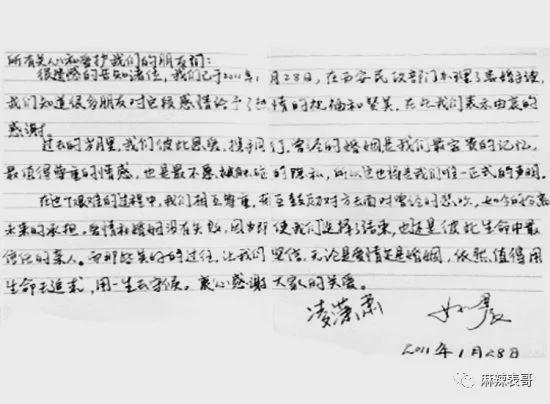 所有关心和爱护我们的朋友们：
很遗憾的告知诸位，我们已于2011年1月28日，在西安民政部门办理了离婚手续，
我们知道很多朋友对这段感情给予了热情的祝福和赞美，在此我们表示由衷的
感谢。
过去的岁月里，我们彼此恩爱，携手同行，曾经的婚姻是我们最宝贵的记忆，
最值得尊重的情感，也是最不愿被触碰的隐私，所以这也将是我们唯一正式的声明。
在这个艰难的过程中，我们相互尊重，并且鼓励对方去面对曾经的悲欢，如今的分离
未来的承担。爱情和婚姻没有失败，因为即使我们选择了结束，也还是彼此生命中最
信任的亲人。而那些美好的过往，让我们坚信，无论是爱情还是婚姻，依然值得用
生命去追求，用一生去守候。衷心感谢大家的关爱。
凌潇肃 姚晨
2011年1月28日
麻辣表哥